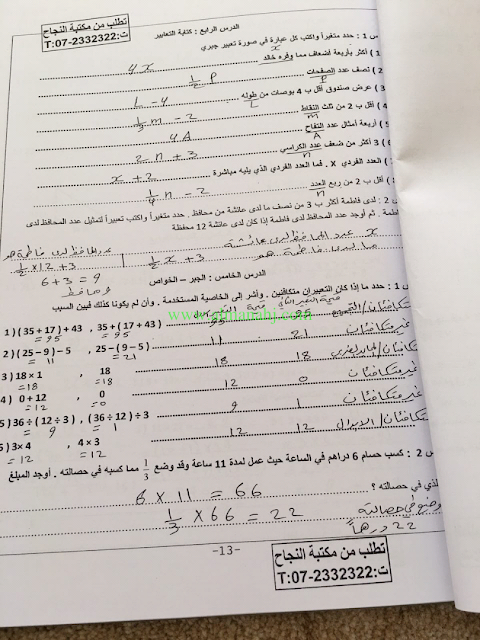 تطلب من مكتبة النجاح
ت:T:07-2332322
الدرس الرابع : كتابة التعابير
س 1 : حدد متغيراً واكتب كل عبارة في صورة تعبير جبري
1 ) أكثر بأربعة أضعاف مما وفره خالد
x
4x
2 ) نصف عدد الصفحات
P
1/2 P
3 ) عرض صندوق أقل ب 4 بوصات من طوله
L
L - 4
4 ) أقل ب 2 من ثلث النقاط
m
1/3 m - 2
5 ) أربعة أمثال عدد التفاح
A
4A
6 ) 3 أكثر من ضعف عدد الكراسي
n
2n + 3
العدد الفردي x . فما العدد الفردي الذي يليه مباشرة
x + 2
أقل ب 2 من ربع العدد
n
1/4 n - 2
س 2 : لدى فاطمة أكثر ب 3 من نصف ما لدى عائشة من محافظ . حدد متغيراً واكتب تعبيراً لتمثيل عدد المحافظ لدى
فاطمة . ثم أوجد عدد المحافظ لدى فاطمة إذا كان لدى عائشة 12 محفظة
x عدد المحافظ لدى عائشة
عدد المحافظ لدى فاطمة هو
ما لدى فاطمة هو 1/2 x + 3
1/2 x 12 + 3
6 + 3 = 9
الدرس الخامس : الجبر – الخواص
س 1 : حدد ما إذا كان التعبيران متكافئين . وأشر إلى الخاصية المستخدمة . وأن لم يكونا كذلك فبين السبب
1 ) ( 35 + 17 ) + 43 , 35 + ( 17 + 43 )
= 95 = 95
95 95 متكافئان / التجميع
2 ) ( 25 – 9 ) – 5 , 25 – ( 9 – 5 )
= 11 = 21
11 21 غير متكافئان
3 ) 18 × 1 , 18
=18 =18
18 18
4 ) 0 + 12 , 0
=12 =0
12 0 غير متكافئان
5 ) 36 ÷ ( 12 ÷ 3 ) , ( 36 ÷ 12 ) ÷ 3
= 9 = 1
9 1 غير متكافئان
6 ) 3× 4 , 4 × 3
= 12 = 12
12 12 متكافئان / الإبدال
س 2 : كسب حسام 6 دراهم في الساعة حيث عمل لمدة 11 ساعة وقد وضع 1/3 مما كسبه في حصالته . أوجد المبلغ
الذي في حصالته ؟
6 x 11 = 66
1/3 x 66 = 22
وضع في حصالته
22 درهماً
-13-
تطلب من مكتبة النجاح
ت:T:07-2332322